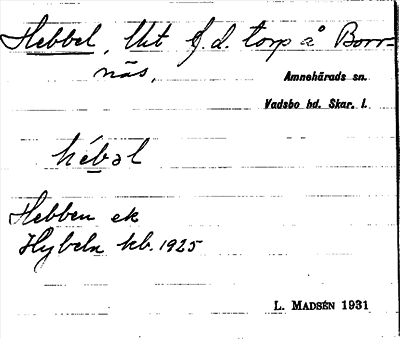 Hebbel, Urt f.d. torp å Borr-
näs,
Amnehärads sn.
Vadsbo hd. Skar. l.
hébəl
Hebben ek
Hybeln kb. 1925
L. MADSÉN 1931